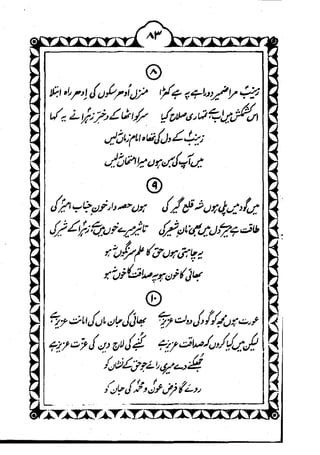 ۸۳
۸
زینبؑ مرا ضمیر دوراہے پہ ہے کھڑا منزل اُدھر سکوں کی اِدھر راہِ ابتلا
اس کشمکش میں اب ہے تمھاری صلاح کیا سر کو اٹھا کے دخترِ زہراؑ نے یہ کہا
زینبؑ کے دل کی تھاہ امامِ زماں لیں
میں آپ کی بہن ہوں میرا امتحان لیں
۹
میں گود میں پلی ہوں شہِ قلعہ گیر کی ہوں حصہ دار خونِ جنابِ امیرؑ کی
طاقت ہے میں نانِ شعیر کی تاثیر میرے خوں میں ہے زہراؑ کے شیر کی
یہ چاہتی ہوں حق کا علم سرنگوں نہ ہو
بھائی کا خون ہو پہ صداقت کا خوں نہ ہو
۱۰
عورت ہوں مجھ کو گود کی دولت عزیز ہے بھائی کی جان ماں کی امانت عزیز ہے
لیکن میں کیا کروں کہ صداقت عزیز ہے کنبے کی لاج دین کی عزت عزیز ہے
جھکنے نہ دے میری رائے جو حق کے نشاں کو
روئے گا فرض عونؑ و محمدؑ کی جان کو